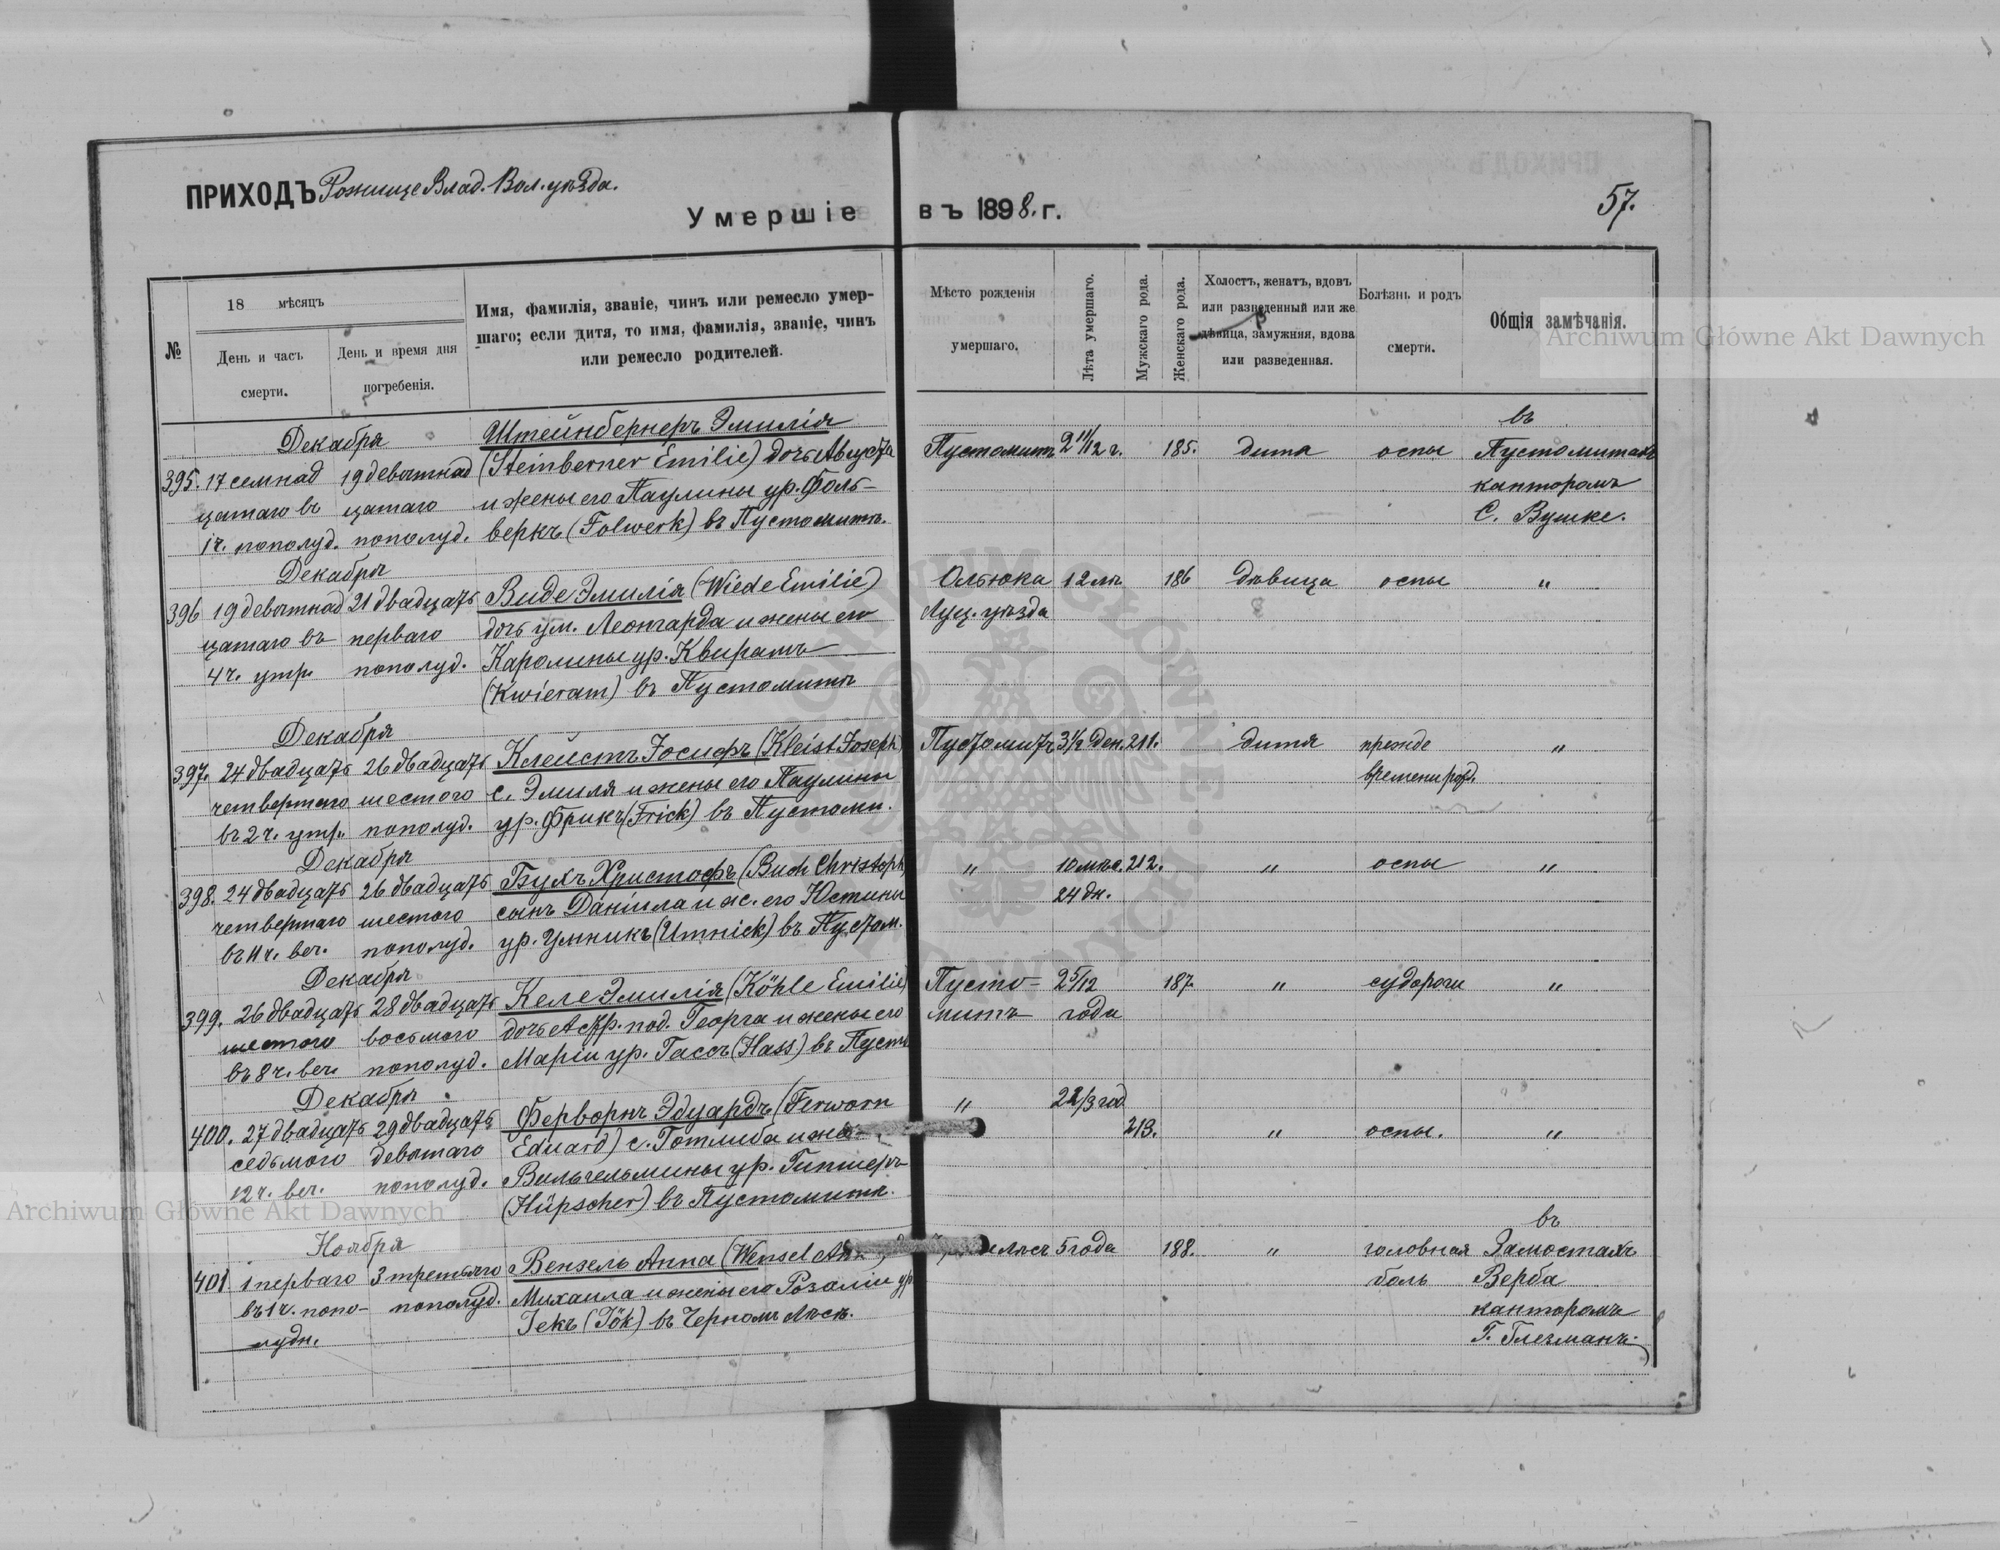 ПРИХОДЪ Рожище Влад. Вол. уѣзда.
Умершіе въ 1898. г.
57.
№
18 мѣсяцъ
День и часъ смерти.
День и время дня погребенія.
Имя, фамилія, званіе, чинъ или ремесло умер-
шаго; если дитя, то имя, фамилія, званіе, чинъ
или ремесло родителей.
Мѣсто рожденія
умершаго.
Лѣта умершаго.
Мужскаго рода.
Женскаго рода.
Холостъ, женатъ, вдовъ
или разведенный или же
дѣвица, замужняя, вдова
или разведенная.
Болѣзнь и родъ
смерти.
Общія замѣчанія.
Archiwum Główne Akt Dawnych
Декабря Штейнбернеръ Эмилія въ
395. 17 семнад 19 девятнад (Steinberner Emilie) дочь Августа Пустомитъ 2 11/12 г. 185. дитя оспы Пустомитахъ
цатаго въ цатаго и жены его Паулины ур. Фоль- канторомъ
1 ч. пополуд. пополуд. веркъ (Folwerk) въ Пустомитъ. С. Вушке.
Декабря
396 19 девятнад 21 двадцать Виде Эмилія (Wiede Emilie) Ольюка 12 лѣ 186 дѣвица оспы "
цатаго въ перваго дочь ум. Леонгарда и жены его Луц. уѣзда
4 ч. утр. пополуд. Каролины ур. Квирамъ
(Kwieram) въ Пустомитъ
Декабря
397. 24 двадцать 26 двадцать Клейстъ Іосифъ (Kleist Joseph) Пустомитъ 3 1/2 ден. 211. дитя прежде "
четвертаго шестого с. Эмиля и жены его Паулины времени род.
въ 2 ч. утр. пополуд. ур. Фрикъ (Frick) въ Пустоми.
Декабря
398. 24 двадцать 26 двадцать Бухъ Христофъ (Buch Christoph " 10 мѣс. 212. " оспы "
четвертаго шестого сынъ Даніила и ж. его Юстины 24 дн.
въ 11 ч. веч. пополуд. ур. Умникъ (Umnick) въ Пустом.
Декабря
399. 26 двадцать 28 двадцать Келе Эмилія (Köhle Emilie) Пусто- 2 5/12 187. " судороги "
шестого восьмого дочь Астр. под. Георга и жены его митъ года
въ 8 ч. веч. пополуд. Маріи ур. Гассъ (Hass) въ Пусто
Декабря
400. 27 двадцать 29 двадцать Ферворнъ Эдуардъ (Ferworn " 2 1/3 год
седьмого девятаго Eduard) с. Готлиба и же 213. " оспы. "
12 ч. веч. пополуд. Вильгельмины ур. Гипшеръ
(Hüpscher) въ Пустомитъ.
Ноября въ
401 1 перваго 3 третьяго Вензель Анна (Wensel лѣсъ 5 года 188. " головная Замостахъ
въ 1 ч. попо- пополуд. Михаила и жены его Розаліи ур боль Верба
лудн. Іекъ (Jök) въ Черномъ Лѣсѣ. канторомъ
Г. Глезманъ.
Archiwum Główne Akt Dawnych